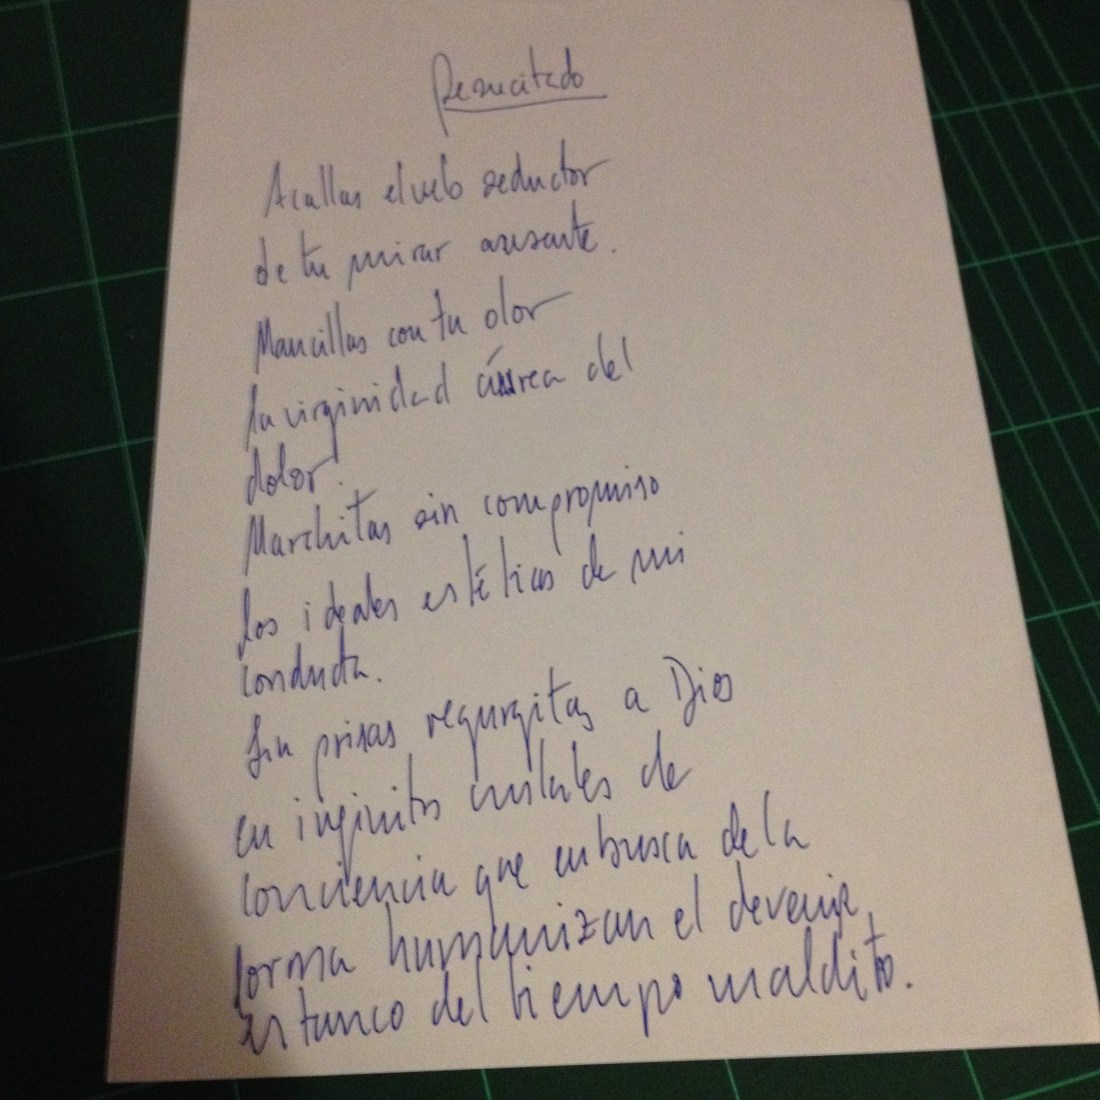 Resucitado
Acallas el velo seductor
de tu mirar ausente.
Mancillas con tu olor
la virginidad áurea del
dolor.
Marchitas sin compromiso
los ideales estéticos de mi
conducta.
Sin prisas regurgitas a Dios
en infinitos cristales de
conciencia que en busca de la
forma humanizan el devenir
estanco del tiempo maldito.